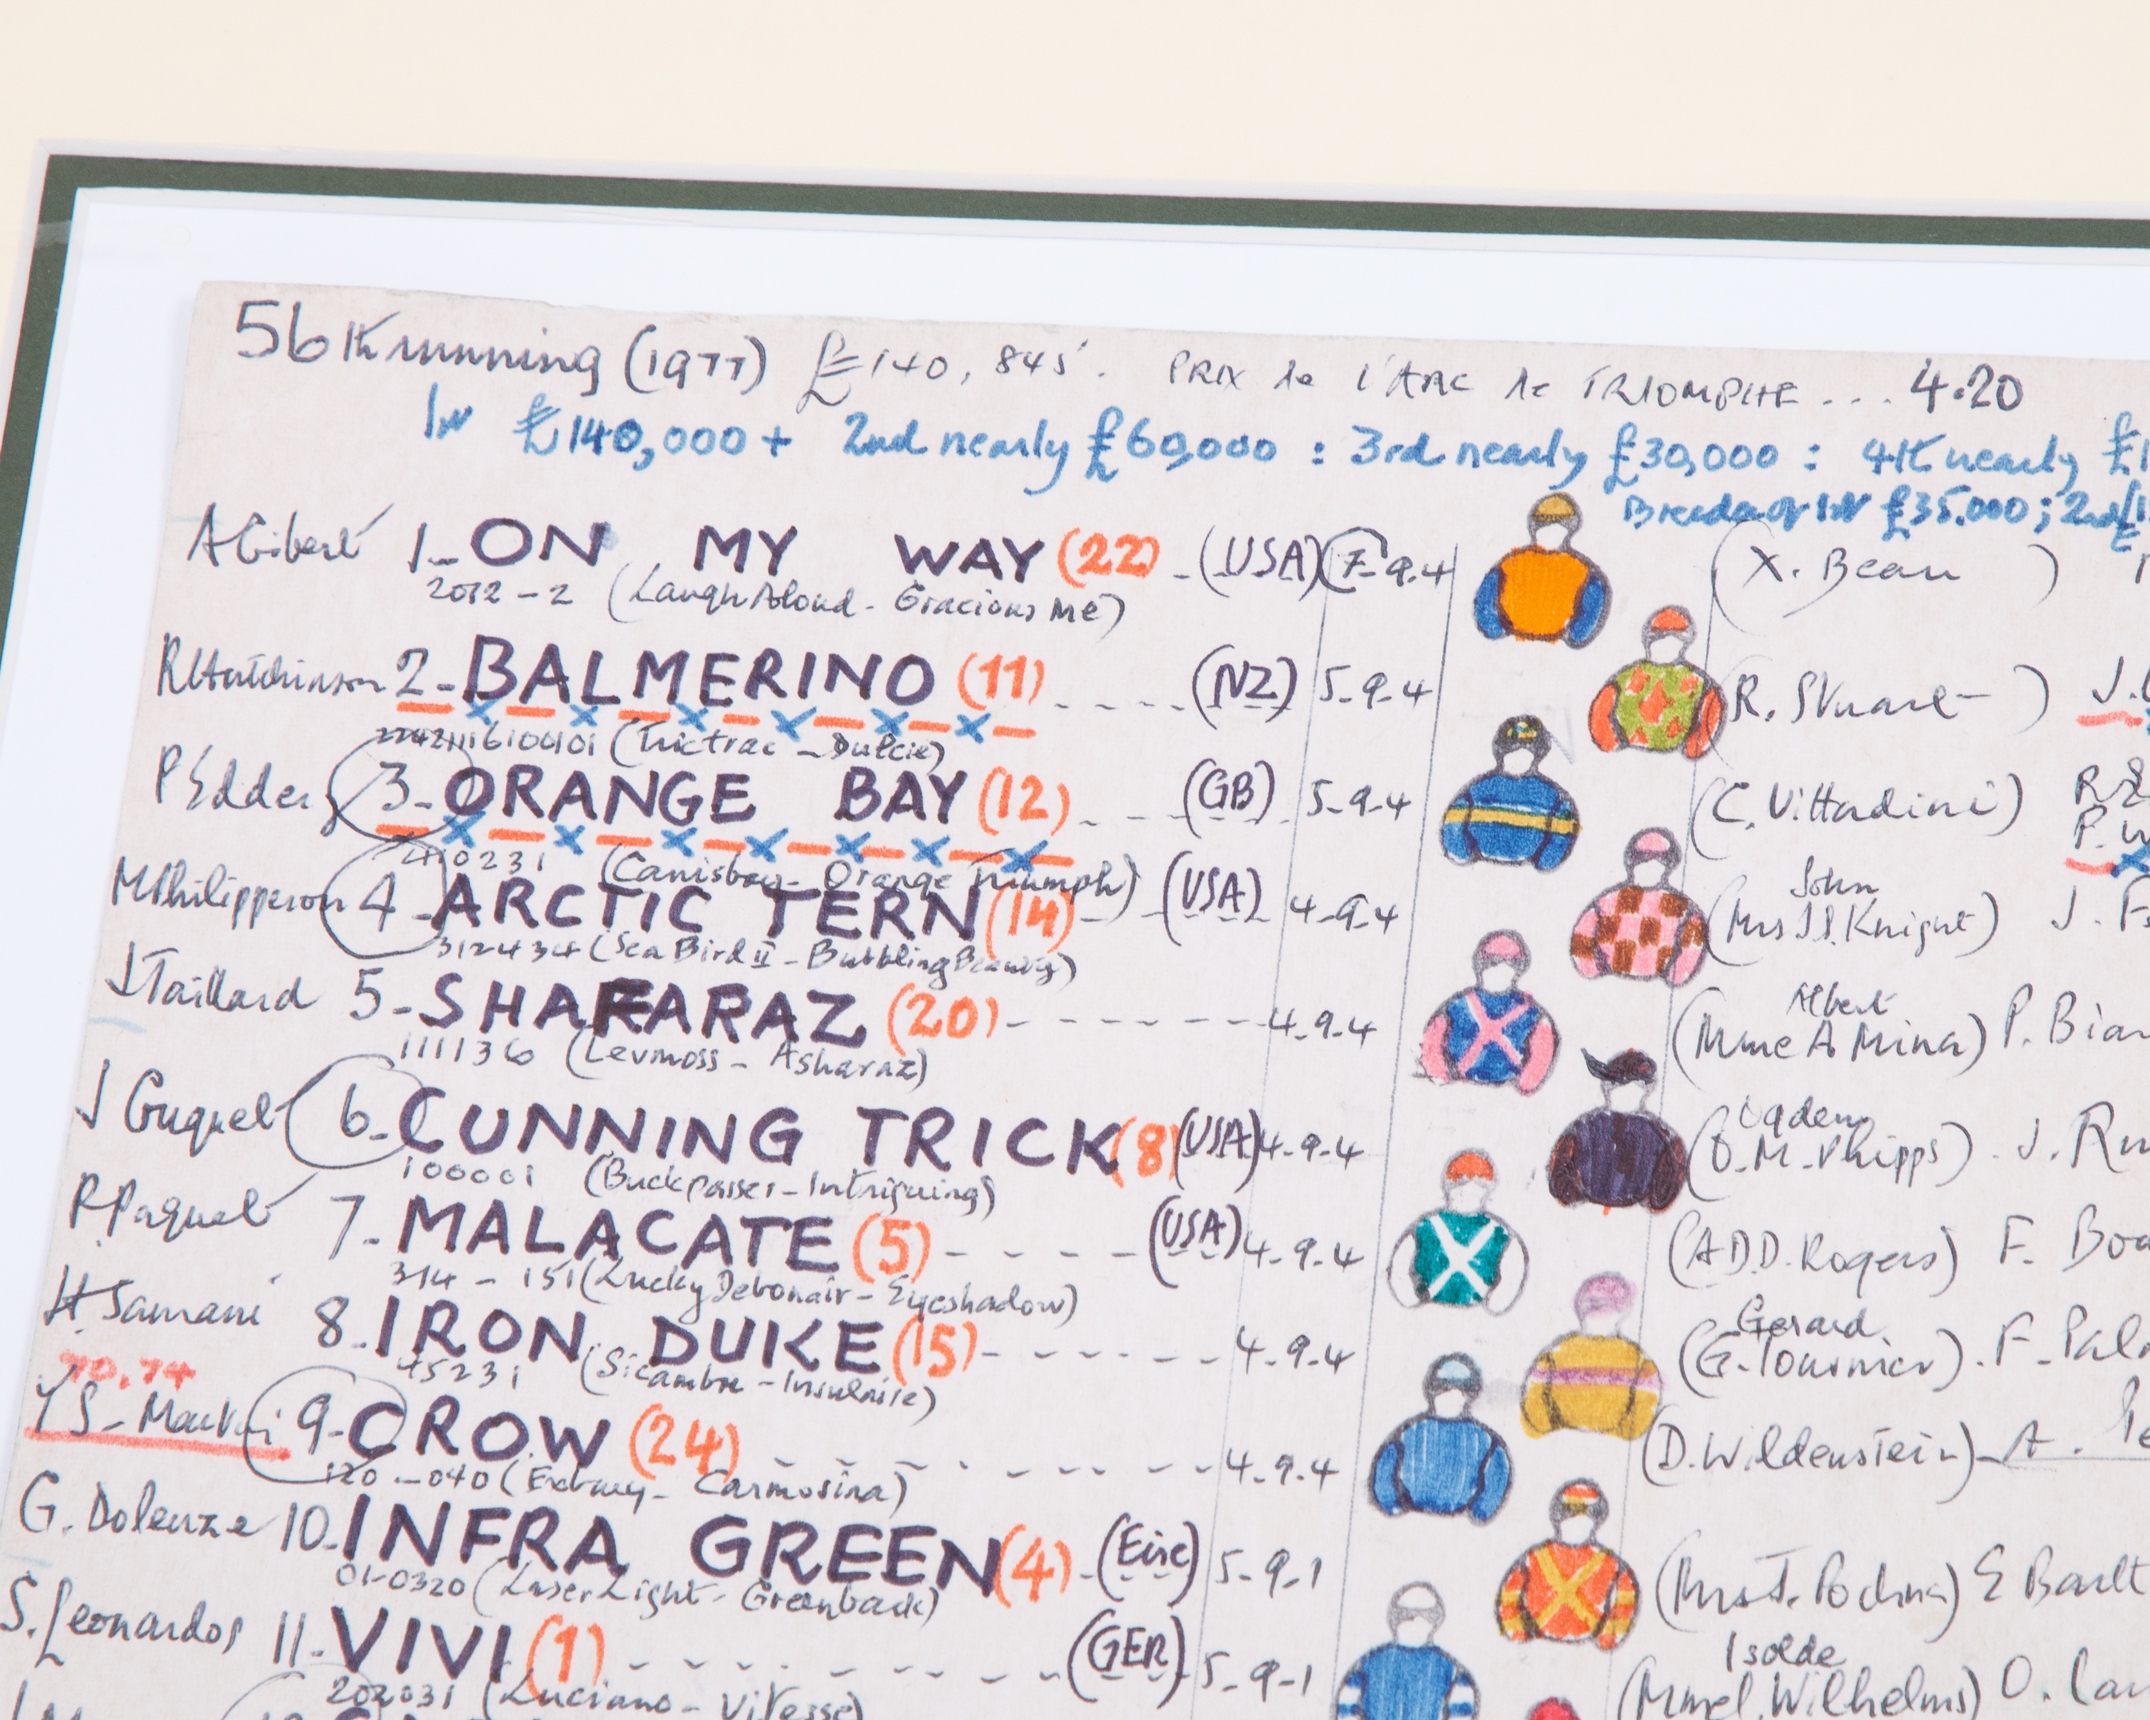 56th running (1977) £140,845. PRIX de l'ARC de TRIOMPHE ... 4.20
1st £140,000 + 2nd nearly £60,000 : 3rd nearly £30,000 : 4th nearly £1
Breeder of 1st £35.000; 2nd
A Gibert 1-ON MY WAY (22) - (USA) 7-9.4 (X. Beau )
2012-2 (Laugh Aloud - Gracious Me)
R Hutchinson 2-BALMERINO (11) ---- (NZ) 5-9-4 (R. Stuart- ) J.
(Trictrac - Dulcie)
P Eddery 3-ORANGE BAY (12) --- (GB) 5-9-4 (C. Vittadini)
410231 (Canisbay - Orange Triumph)
M Philipperon 4-ARCTIC TERN (14) - (USA) 4-9-4 John (Mrs J. Knight) J. F
312434 (Sea Bird II - Bubbling Beauty)
J Taillard 5-SHAFARAZ (20) ------- 4-9-4 Albert (Mme A Mina) P. Bia
1111360 (Levmoss - Asharaz)
J Guguel 6-CUNNING TRICK (8) (USA) 4-9-4 Ogden (O.M. Phipps). J. Ru
100001 (Buckpasser - Intriguing)
P. Paquet 7-MALACATE (5) ---- (USA) 4-9-4 (A.D.D. Rogers) F. Bou
314-151 (Lucky Debonair - Eyeshadow)
H. Samani 8-IRON DUKE (15) ------ 4-9-4 Gerard (G. Tournier). F. Pal
45231 (Sicambre - Insulaire)
70,74
Y S- Martin 9-CROW (24) -------- 4-9-4 (D. Wildenstein) - A. Pe
120-040 (Exbury - Carmosina)
G. Doleuze 10-INFRA GREEN (4) - (Eire) 5-9-1 E Bartt
01-0320 (Laser Light - Greenback)
S. Leonardos 11-VIVI (1) -------- (GER) 5-9-1 Isolde Wilhelms) O. Lan
202031 (Luciano - Vitesse)